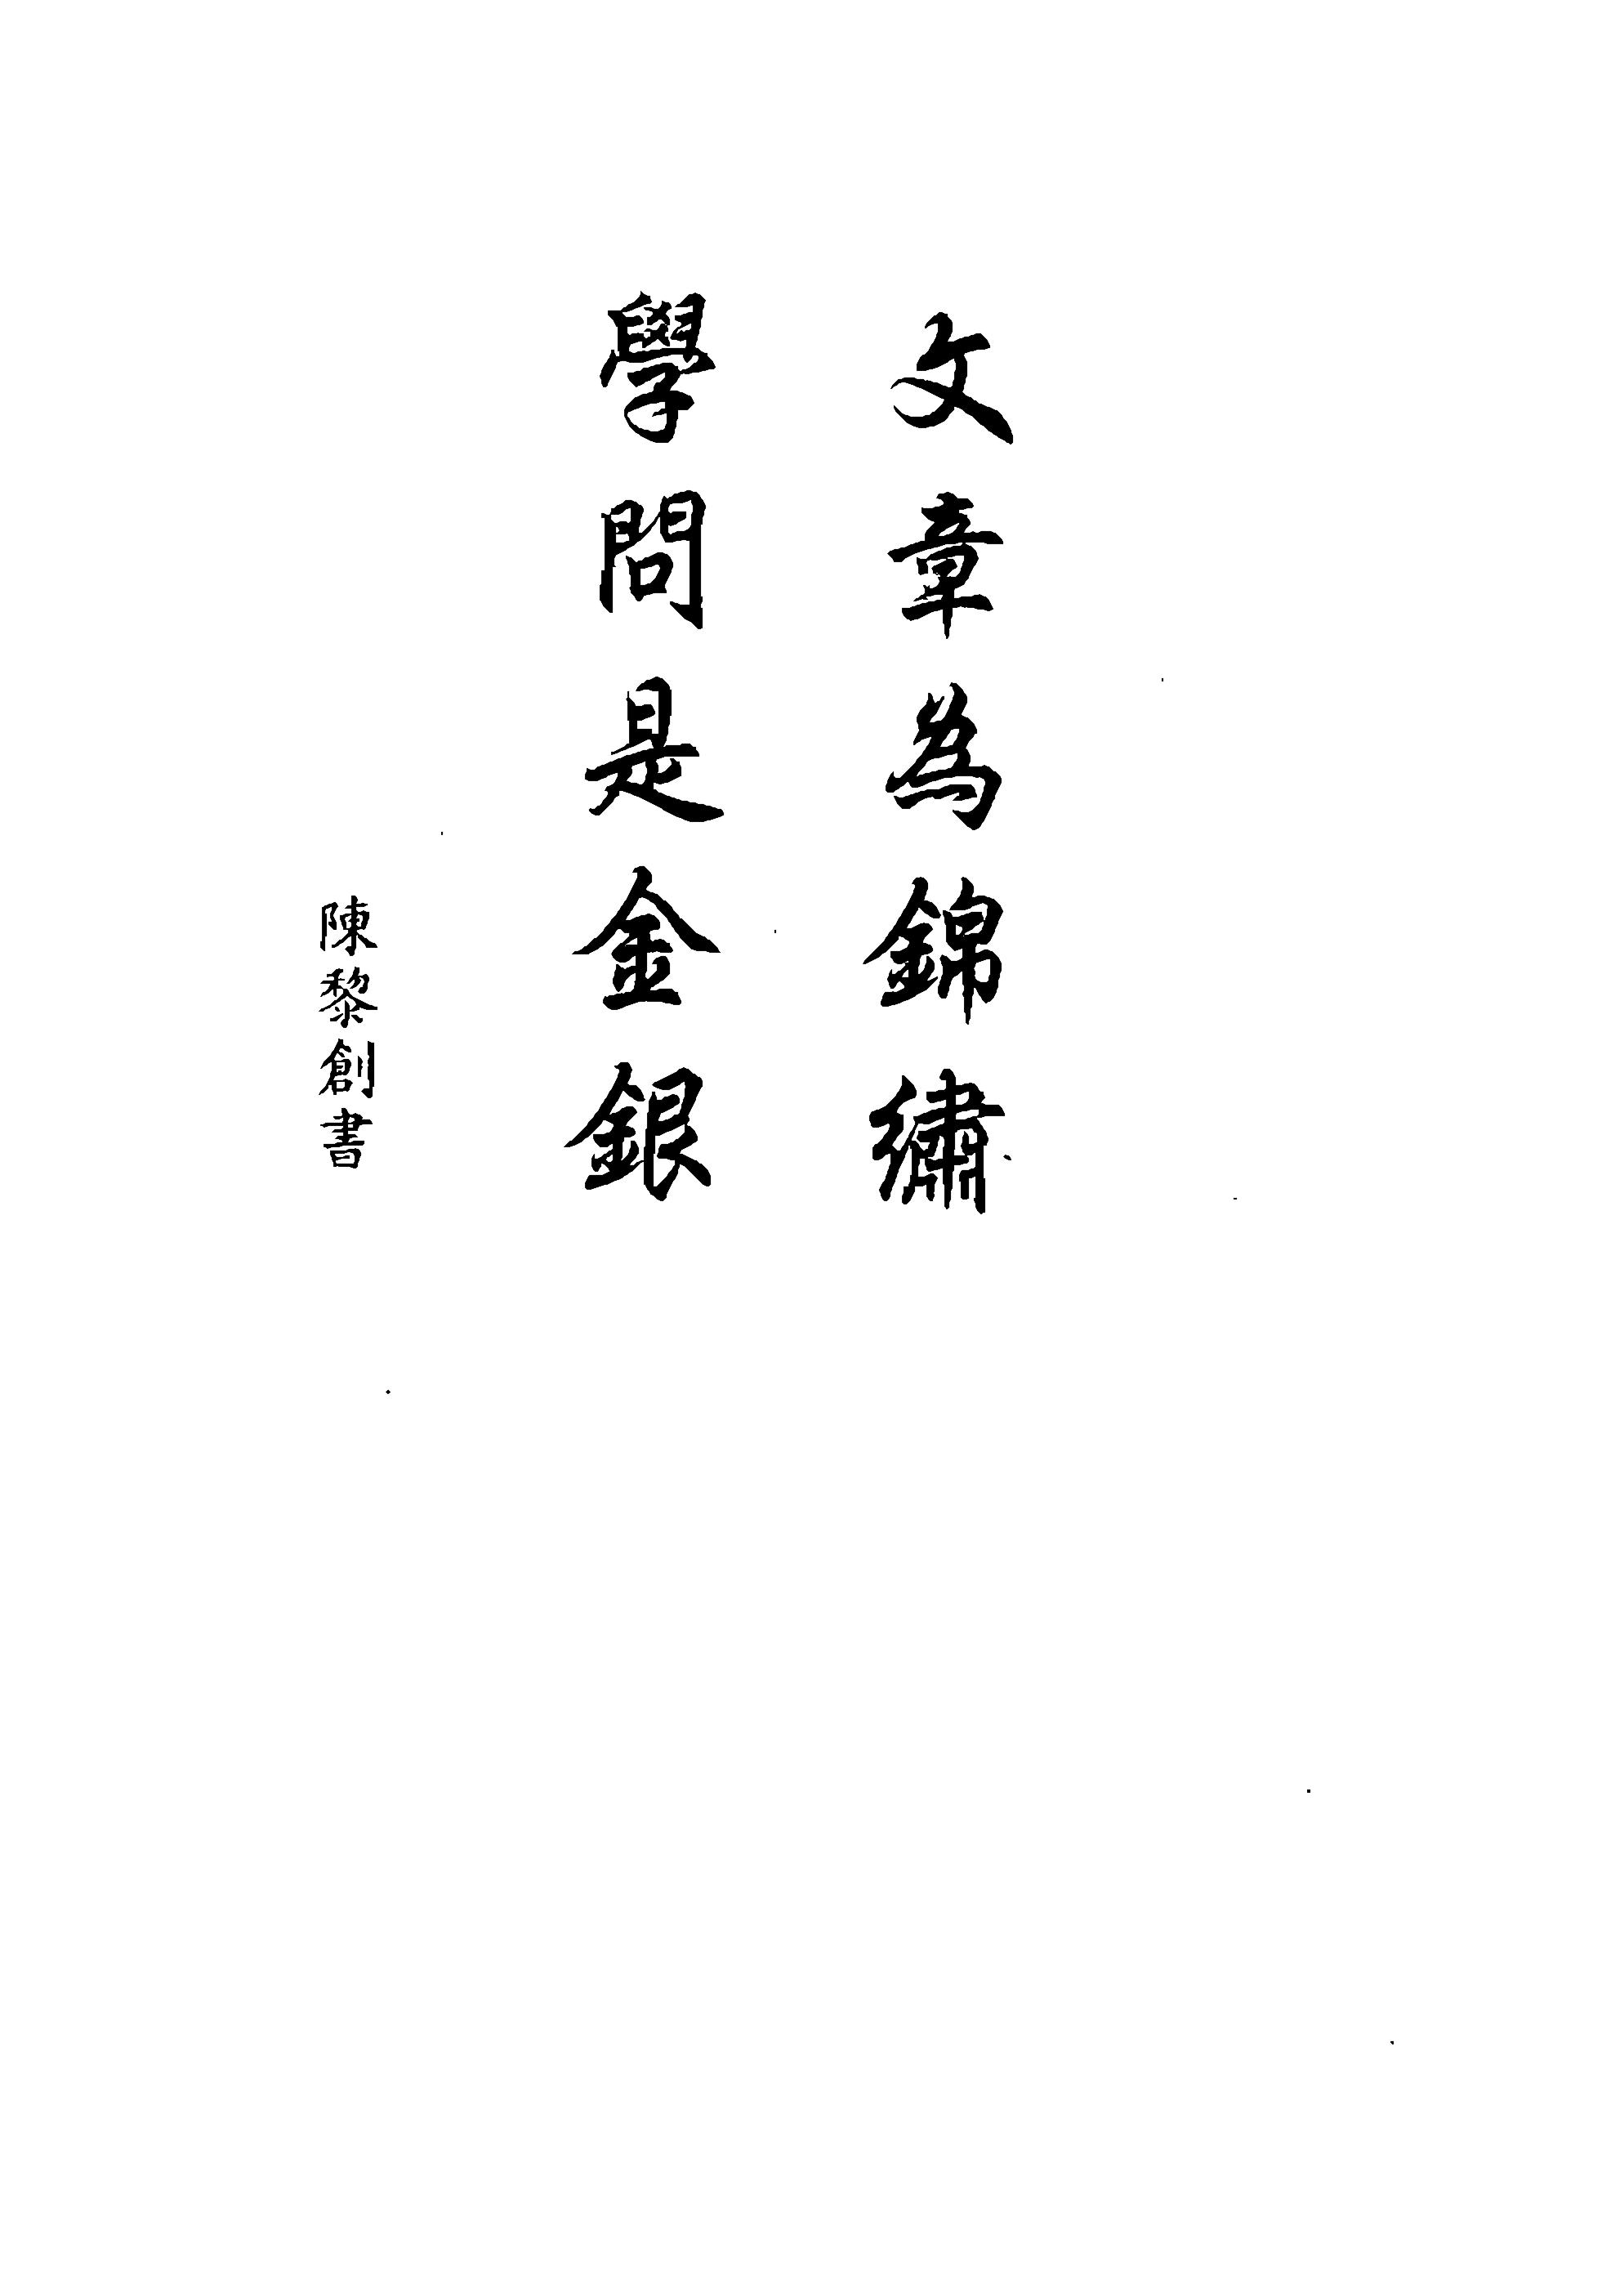 文章為錦繡
學問是金銀
陳黎創書